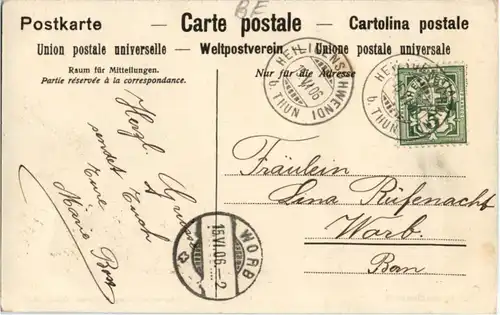 Postkarte — Carte postale — Cartolina postale
BE
Union postale universelle — Weltpostverein — Unione postale universale
Raum für Mitteilungen.
Partie réservée à la correspondance.
Nur für die Adresse
HEILIGENSCHWENDI
VI.06
b. THUN
b. THUN
5
Herzl. Gruss
sendet Euch
Eure
Fräulein
Lina Rüfenacht
Worb.
Bern
WORB
15.VI.06.-2